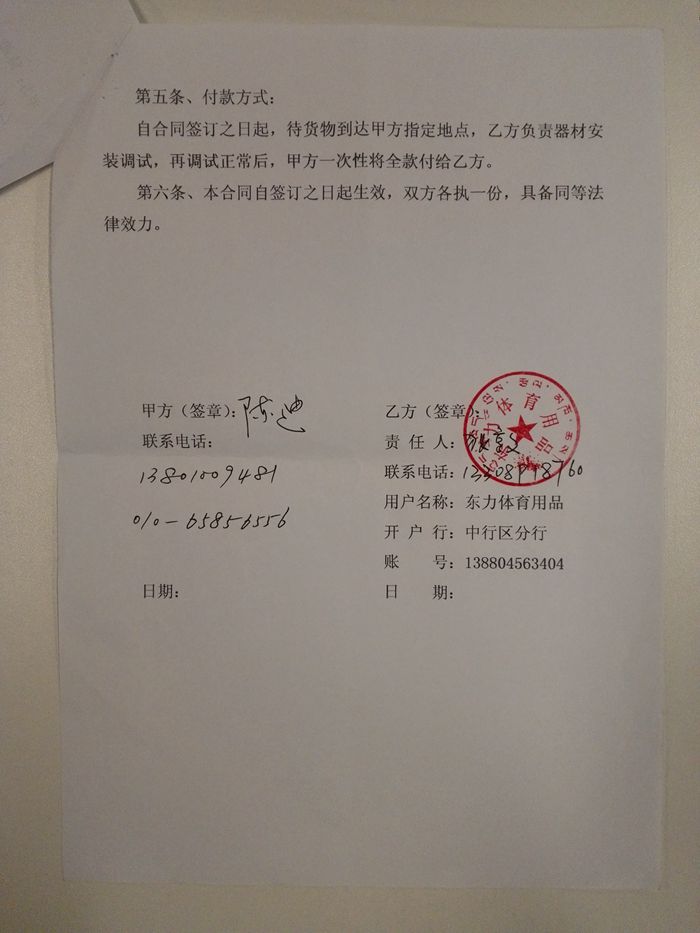 第五条、付款方式：
自合同签订之日起，待货物到达甲方指定地点，乙方负责器材安
装调试，再调试正常后，甲方一次性将全款付给乙方。
第六条、本合同自签订之日起生效，双方各执一份，具备同等法
律效力。
甲方（签章）：陈迪
联系电话：
13801009481
010-65856556
日期：
乙方（签章）：
力体育用品
责 任 人：
联系电话：
用户名称：东力体育用品
开 户 行：中行区分行
账 号：138804563404
日 期：